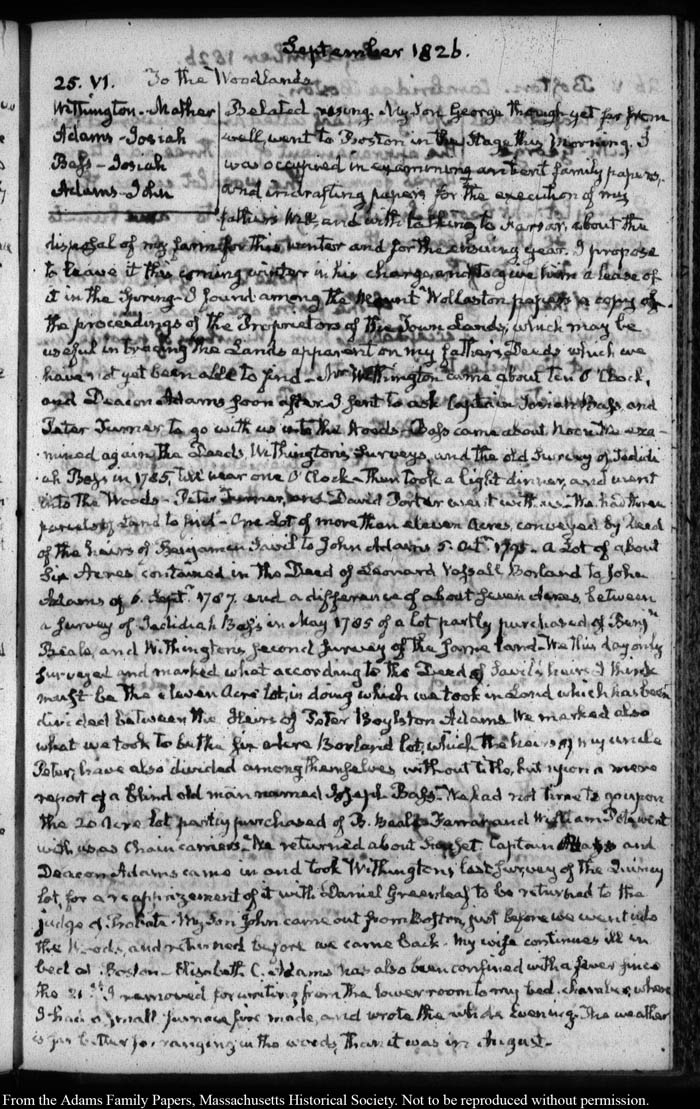 September 1826.
25. VI. To the Woodlands
Withington - Mather
Adams - Josiah
Bass - Josiah
Adams - John
Belated rising. My Son George though yet far from
well, went to Boston in the Stage this Morning. I
was occupied in examining ancient family papers,
and in drafting papers for the execution of my
father's Will, and with talking to Farrar, about the
disposal of my farm for this winter and for the ensuing year. I propose
to leave it this coming winter in his charge, and to give him a lease of
it in the Spring - I found among the Mount Wollaston papers a copy of
the proceedings of the Proprietors of the Town Lands, which may be
useful in tracing the Lands apparent on my father's Deeds which we
have not yet been able to find - Mr Withington came about ten O'Clock,
and Deacon Adams soon after. I sent to ask Captain Josiah Bass, and
Peter Turner to go with us into the Woods - Bass came about Noon. We exa-
mined again the Deeds, Withington's Surveys, and the old Survey of Jedidi-
ah Bass in 1785, till near one O'Clock - Then took a light dinner, and went
into the Woods - Peter Turner, and David Porter went with us - We had three
parcels of Land to find - One Lot of more than eleven Acres, conveyed by deed
of the heirs of Benjamin Savil to John Adams 5. Octr. 1795 - A Lot of about
Six Acres contained in the Deed of Leonard Vassall Borland to John
Adams of 6. Septr. 1787. and a difference of about Seven Acres, between
a Survey of Jedidiah Bass in May 1785 of a lot partly purchased of Benjn.
Beale, and Withington's second Survey of the same land - We this day only
surveyed and marked what according to the Deed of Savil's heirs I think
must be the eleven Acre lot, in doing which we took in Land which has been
divided between the Heirs of Peter Boylston Adams. We marked also
what we took to be the six Acre Borland lot, which the heirs of my uncle
Peter, have also divided among themselves without title, but upon a mere
report of a blind old man named Joseph Bass. We had not time to go upon
the 20 Acre lot partly purchased of B. Beale - Farrar and William went
with us as Chain carriers. We returned about Sunset. Captain Bass and
Deacon Adams came in and took Withington's last Survey of the Quincy
lot, for a reappraizement of it with Daniel Greenleaf, to be returned to the
judge of Probate - My Son John came out from Boston, just before we went into
the Woods, and returned before we came back. My wife continues ill in
bed at Boston - Elizabeth C. Adams has also been confined with a fever since
the 21st. I removed for writing from the lower room to my bed chamber, where
I had a small furnace fire made, and wrote the whole Evening. The weather
is far better for ranging in the woods, than it was in August -
From the Adams Family Papers, Massachusetts Historical Society. Not to be reproduced without permission.